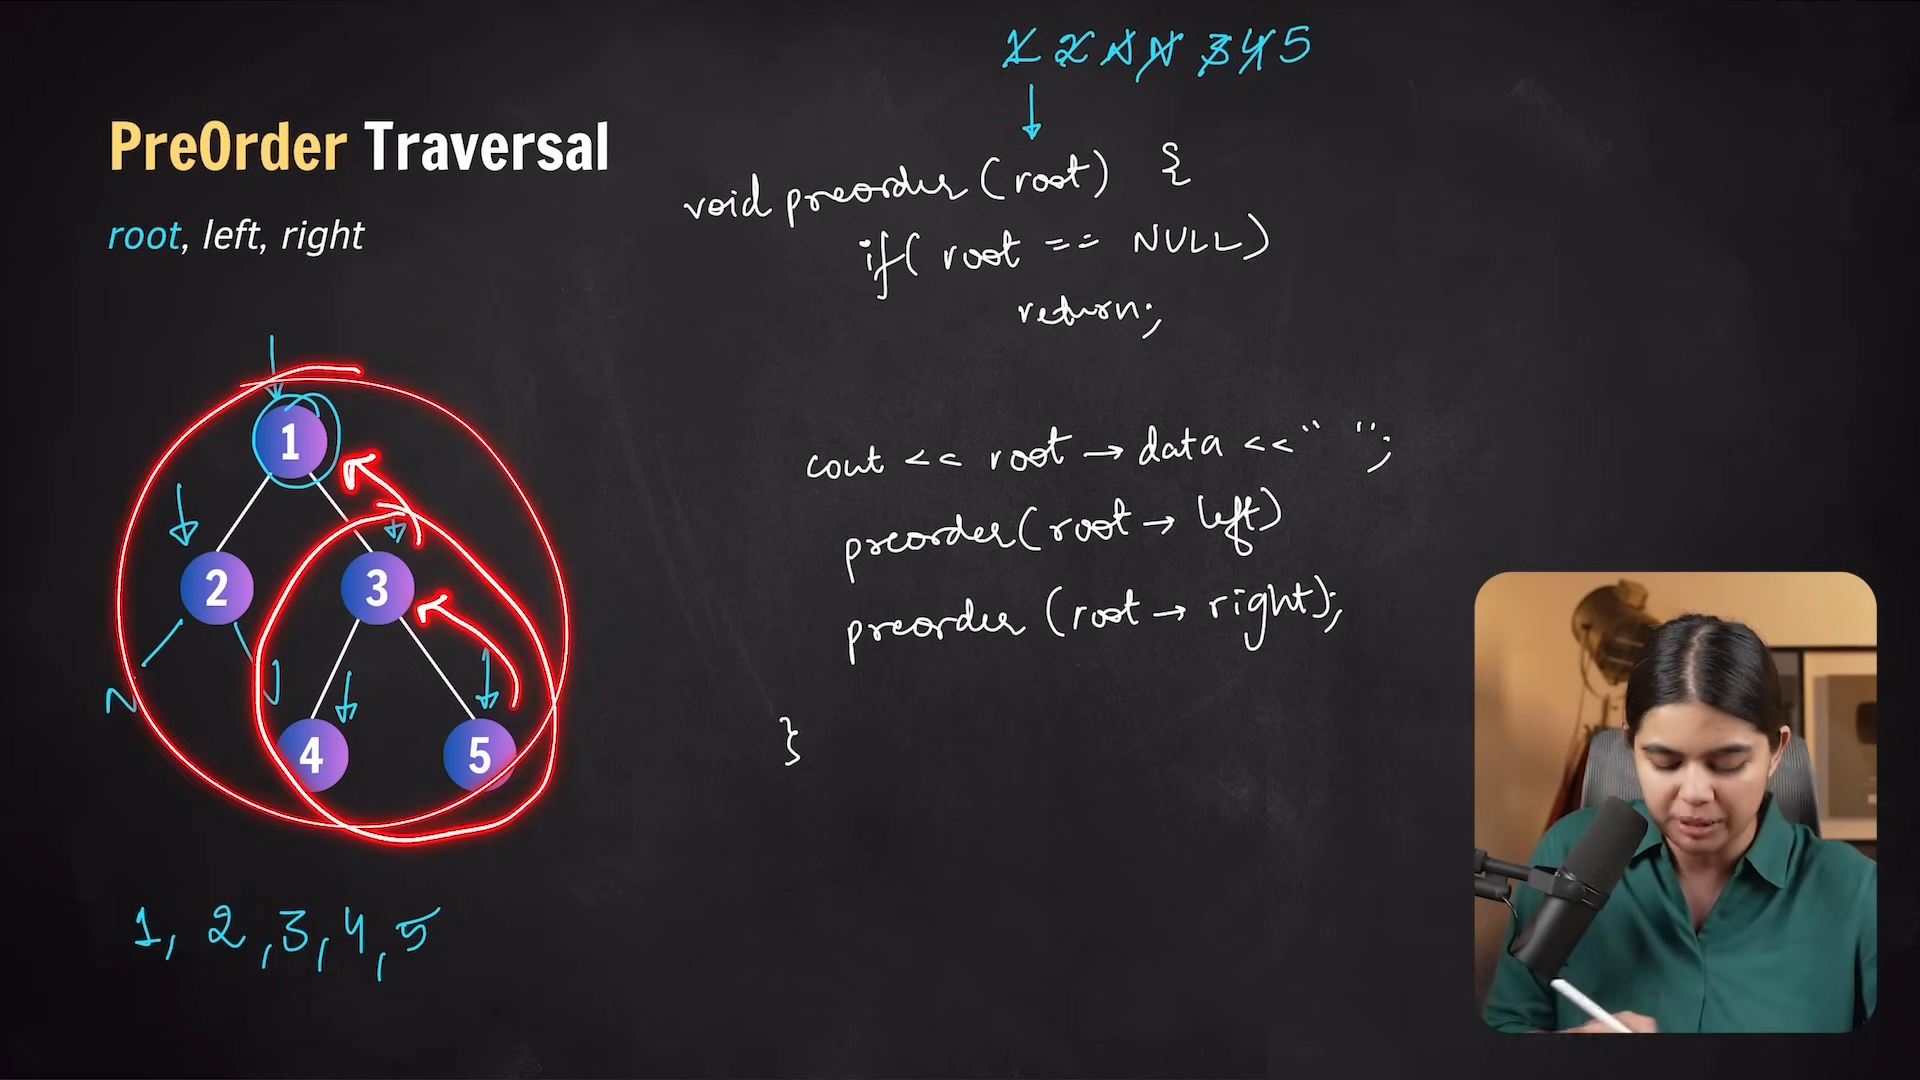 1 2 N N 3 4 5
PreOrder Traversal
root, left, right
void preorder (root) {
if( root == NULL)
return;
cout << root → data << " ";
preorder(root → left)
preorder (root → right);
}
1
2
3
N
4
5
1, 2, 3, 4, 5